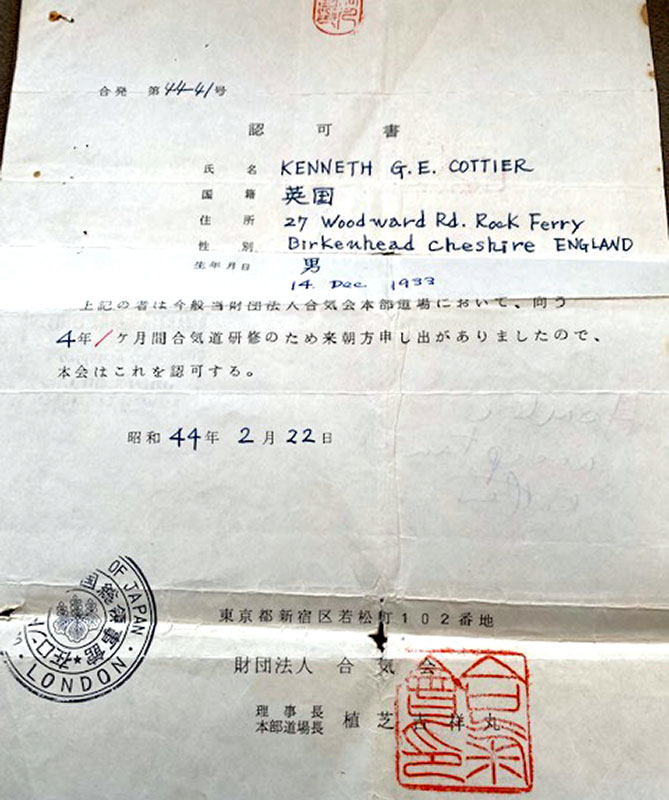 合発 第44-41号
認可書
氏名 KENNETH G.E. COTTIER
国籍 英国
住所 27 Woodward Rd. Rock Ferry
性別 Birkenhead Cheshire ENGLAND
生年月日 男
14. Dec. 1933
上記の者は今般当財団法人合気会本部道場において、向う
4年/ケ月間合気道研修のため来朝方申し出がありましたので、
本会はこれを認可する。
昭和44年2月22日
OF JAPAN
国総領事館
在ロンド
LONDON
東京都新宿区若松町102番地
財団法人 合気会
理事長
本部道場長 植芝吉祥丸